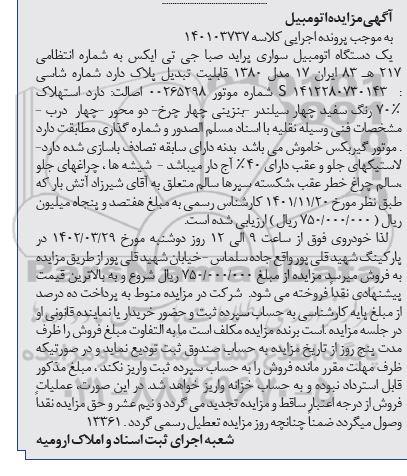 آگهی مزایده اتومبیل
به موجب پرونده اجرایی کلاسه ۱۴۰۱۰۳۷۳۷
یک دستگاه اتومبیل سواری پراید صبا جی تی ایکس به شماره انتظامی
۲۱۷ هـ ۸۳ ایران ۱۷ مدل ۱۳۸۰ قابلیت تبدیل پلاک دارد شماره شاسی
: S ۱۴۱۲۲۸۰۷۳۰۱۴۳ شماره موتور ۰۰۲۶۵۲۹۸ اصالت: دارد استهلاک
۷۰٪ رنگ سفید چهار سیلندر -بنزینی چهار چرخ- دو محور -چهار درب -
مشخصات فنی وسیله نقلیه با اسناد مسلم الصدور و شماره گذاری مطابقت دارد
. موتور گیربکس خاموش می باشد بدنه دارای سابقه تصادف بازسازی شده دارد-
لاستیکهای جلو و عقب دارای ۴۰٪ آج دار میباشد - شیشه ها ، چراغهای جلو
،سالم چراغ خطر عقب ،شکسته سپرها سالم متعلق به آقای شیرزاد آتش بار که
طبق نظر مورخ ۱۴۰۱/۱۱/۲۰ کارشناس رسمی به مبلغ هفتصد و پنجاه میلیون
ریال ( ۷۵۰/۰۰۰/۰۰۰ ریال ) ارزیابی شده است.
لذا خودروی فوق از ساعت ۹ الی ۱۲ روز دوشنبه مورخ ۱۴۰۲/۰۳/۲۹ در
پارکینگ شهید قلی پور واقع جاده سلماس - خیابان شهید قلی پور از طریق مزایده
به فروش میرسد مزایده از مبلغ ۷۵۰/۰۰۰/۰۰۰ ریال شروع و به بالاترین قیمت
پیشنهادی نقداً فروخته می شود. شرکت در مزایده منوط به پرداخت ده درصد
از مبلغ پایه کارشناسی به حساب سپرده ثبت و حضور خریدار یا نماینده قانونی او
در جلسه مزایده است برنده مزایده مکلف است ما به التفاوت مبلغ فروش را ظرف
مدت پنج روز از تاریخ مزایده به حساب صندوق ثبت تودیع نماید و در صورتیکه
ظرف مهلت مقرر مانده فروش را به حساب سپرده ثبت واریز نکند ، مبلغ مذکور
قابل استرداد نبوده و به حساب خزانه واریز خواهد شد. در این صورت، عملیات
فروش از درجه اعتبار ساقط و مزایده تجدید می گردد و نیم عشر و حق مزایده نقداً
وصول میگردد ضمناً چنانچه روز مزایده تعطیل رسمی گردد . ۱۳۳۶۱
شعبه اجرای ثبت اسناد و املاک ارومیه